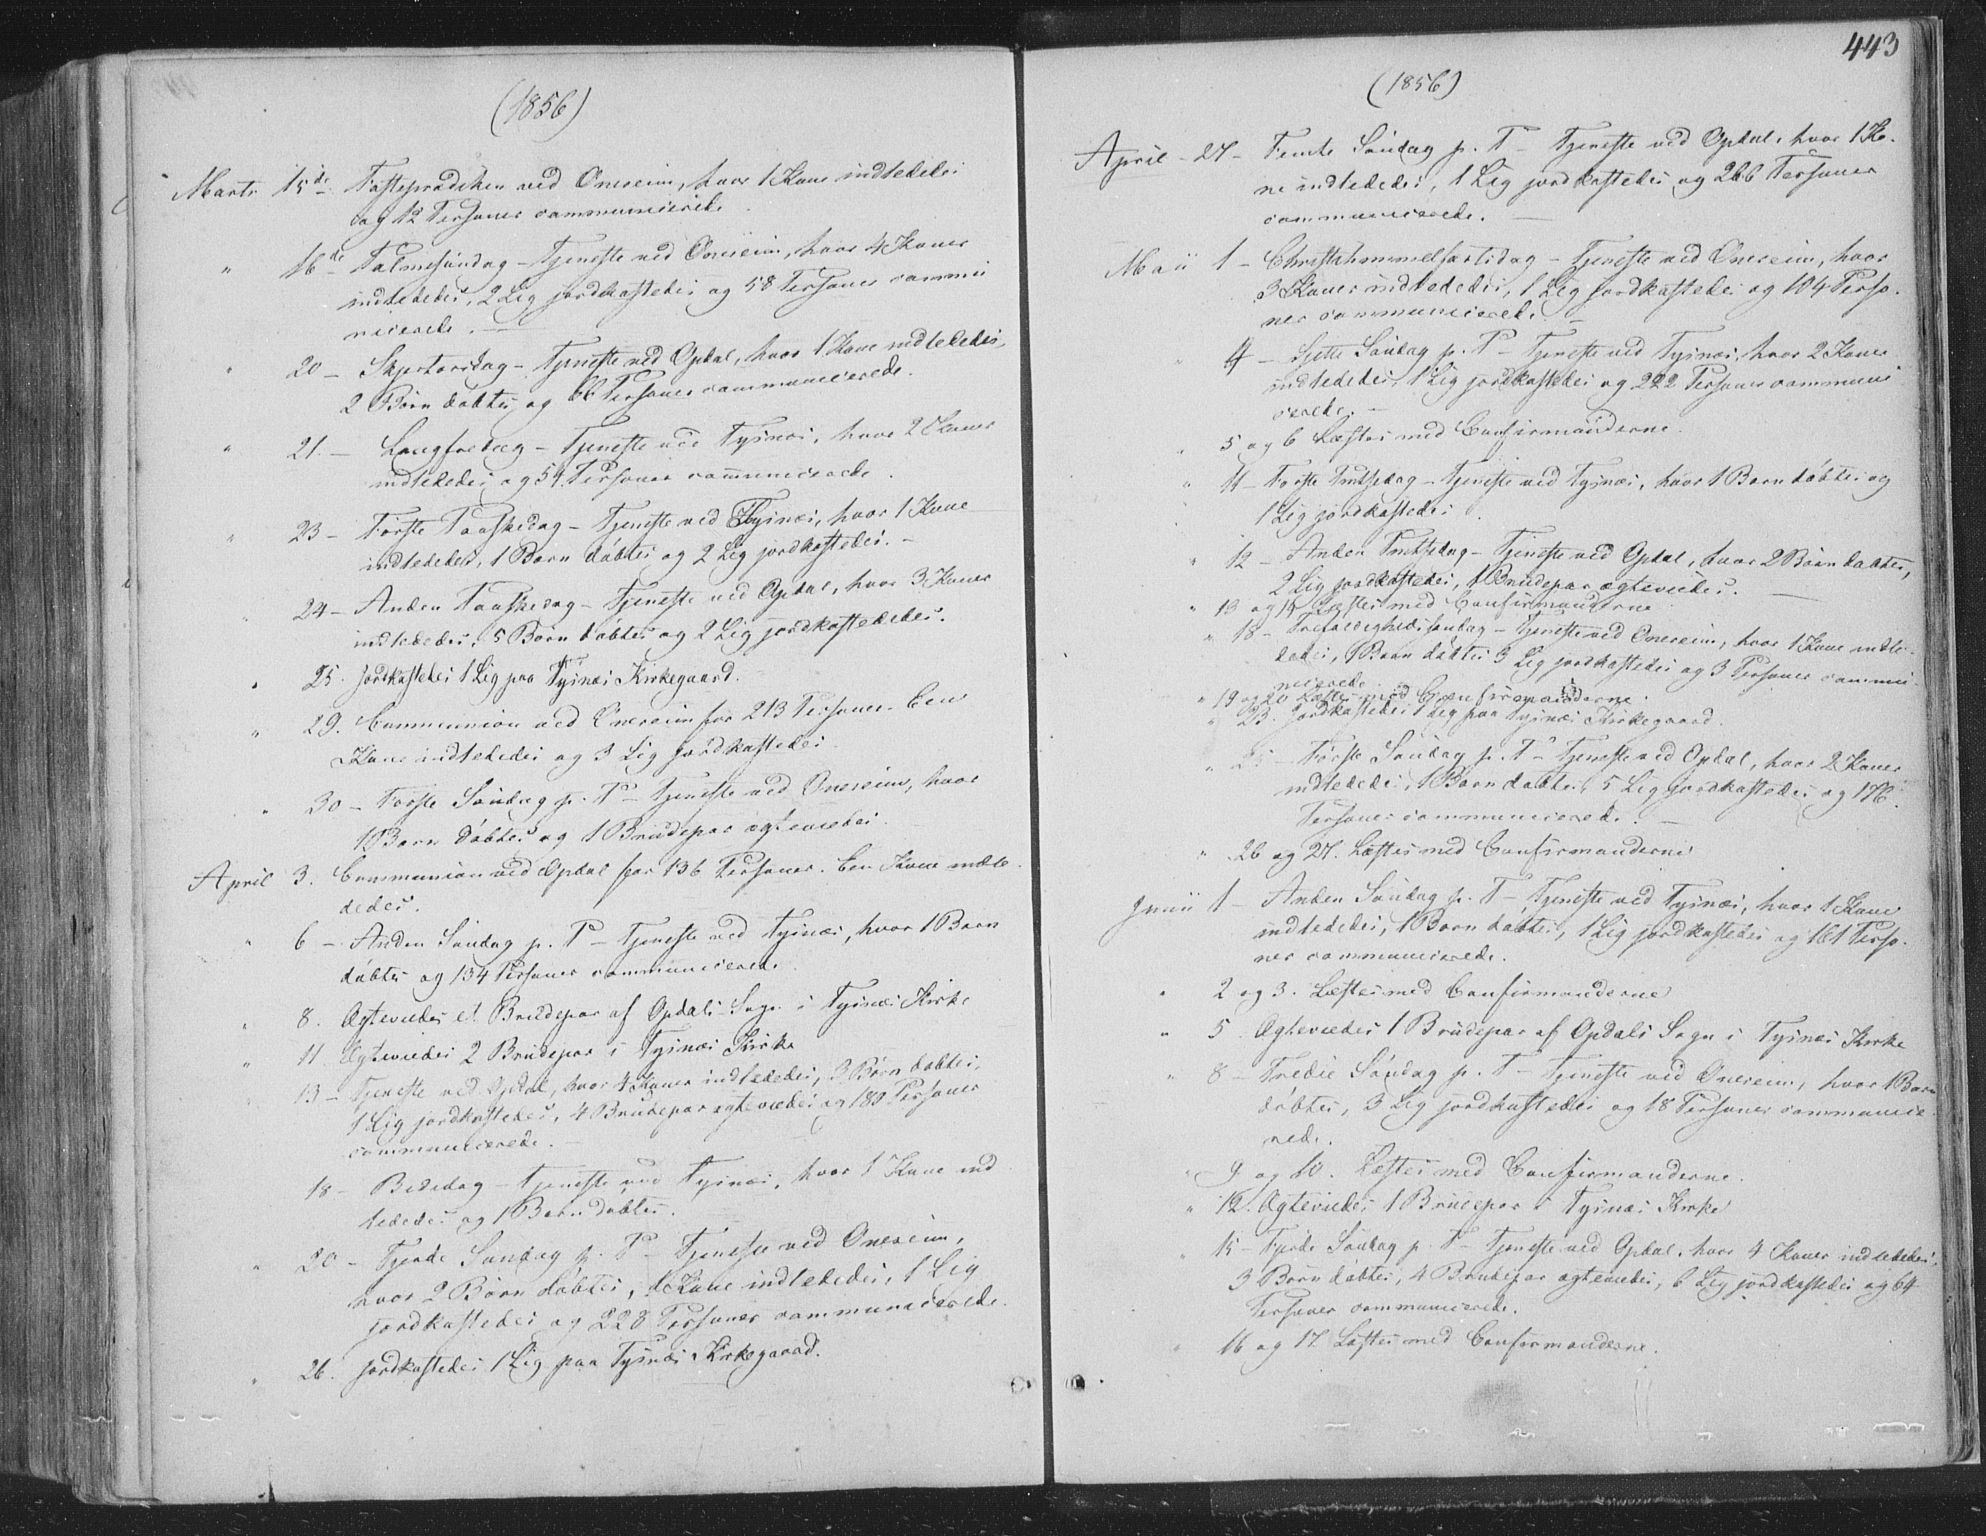 (1856)
Marts 15de Fasteprædiken ved Onereim, hvor 1 Kone indlededes
og 12 Personer communicerede.
" 16de Palmesøndag - Tjeneste ved Onereim, hvor 4 Koner
indlededes, 2 Lig jordkastedes og 58 Personer commu
nicerede. -
" 20 - Skjertorsdag - Tjeneste ved Opdal, hvor 1 Kone indlededes,
2 Børn døbtes og 66 Personer communicerede.
" 21. - Langfredag - Tjeneste ved Tysnæs, hvor 2 Koner
indlededes og 54 Personer communicerede.
" 23 - Første Paaskedag - Tjeneste ved Tysnæs, hvor 1 Kone
indlededes, 1 Barn døbtes og 2 Lig jordkastedes. -
" 24 - Anden Paaskedag - Tjeneste ved Opdal, hvor 3 Koner
indlededes, 5 Børn døbtes og 2 Lig jordkastedes.
" 25. Jordkastedes 1 Lig paa Tysnæs Kirkegaard.
" 29. Communion ved Onereim for 213 Personer. Een
Kone indlededes og 3 Lig jordkastedes
" 30 - Første Søndag p. P - Tjeneste ved Onereim, hvor
1 Barn døbtes og 1 Brudepar ægteviedes.
April 3. Communion ved Opdal for 136 Personer. Een Kone indle
dedes.
" 6 - Anden Søndag p. P - Tjeneste ved Tysnæs, hvor 1 Barn
døbtes og 134 Personer communicerede.
" 8. Ægteviedes et Brudepar af Opdals Sogn i Tysnæs Kirke
" 11. Ægteviedes 2 Brudepar i Tysnæs Kirke
" 13 - Tjeneste ved Opdal, hvor 4 Koner indlededes, 3 Børn døbtes,
1 Lig jordkastedes, 4 Brudepar ægteviedes og 180 Personer
communicerede. -
18 - Bededag - Tjeneste ved Tysnæs, hvor 1 Kone ind
lededes og 1 Barn døbtes.
" 20 - Fjerde Søndag p. P - Tjeneste ved Onereim,
hvor 2 Børn døbtes, 1 Kone indlededes, 1 Lig
jordkastedes og 228 Personer communicerede.
" 26. Jordkastedes 1 Lig paa Tysnæs Kirkegaard.
443
(1856)
April - 27 - Femte Søndag p. P - Tjeneste ved Opdal, hvor 1 Ko-
ne indlededes, 1 Lig jordkastedes og 266 Personer
communicerede. -
Maii 1 - Christi himmelfartsdag - Tjeneste ved Onereim, hvor
3 Koner indlededes, 1 Lig jordkastedes og 104 Perso-
ner communicerede. -
" 4 - Sjette Søndag p. P - Tjeneste ved Tysnæs, hvor 2 Koner
indlededes, 1 Lig jordkastedes og 222 Personer communi
cerede. -
" 5 og 6 Læstes med Confirmanderne.
" 11 - Første Pintsedag - Tjeneste ved Tysnæs, hvor 1 Barn døbtes og
1 Lig jordkastedes.
" 12 - Anden Pintsedag - Tjeneste ved Opdal, hvor 2 Børn døbtes,
2 Lig jordkastedes, 1 Brudepar ægteviedes. -
" 13 og 14 Læstes med Confirmanderne
" 18 - Trefoldighedssøndag - Tjeneste ved Onereim, hvor 1 Kone indle-
dedes, 1 Barn døbtes 3 Lig jordkastedes og 3 Personer commu-
nicerede.
" 19 og 20 Læstes med Confirmanderne.
" 23. Jordkastedes 1 Lig paa Tysnæs Kirkegaard.
" 25 - Første Søndag p. T - Tjeneste ved Opdal, hvor 2 Koner
indlededes, 1 Barn døbtes, 5 Lig jordkastedes og 176
Personer communicerede. -
" 26 og 27. Læstes med Confirmanderne
Junii 1 - Anden Søndag p. T - Tjeneste ved Tysnæs, hvor 1 Kone
indlededes, 1 Barn døbtes, 1 Lig jordkastedes og 161 Perso-
ner communicerede.
" 2 og 3. Læstes med Confirmanderne
" 5. Ægteviedes 1 Brudepar af Opdals Sogn i Tysnæs Kirke
" 8 - Tredie Søndag p. T - Tjeneste ved Onereim, hvor 1 Barn
døbtes, 3 Lig jordkastedes og 18 Personer communice
rede.
" 9 og 10. Læstes med Confirmanderne.
" 12. Ægteviedes 1 Brudepar i Tysnæs Kirke
" 15 - Fjerde Søndag p. T - Tjeneste ved Opdal, hvor 4 Koner indlededes,
3 Børn døbtes, 4 Brudepar ægteviedes, 6 Lig jordkastedes og 64
Personer communicerede.
" 16 og 17. Læstes med Confirmanderne.